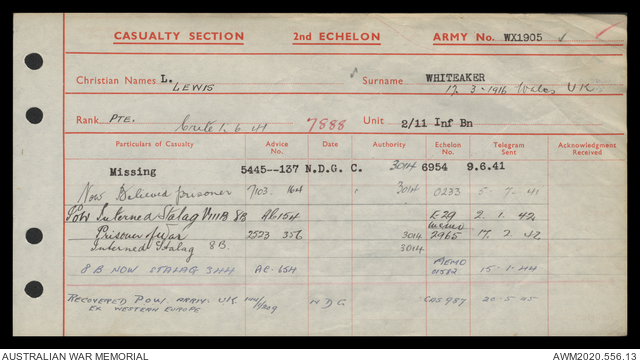 CASUALTY SECTION 2nd ECHELON ARMY No. WX1905
Christian Names L. Surname WHITEAKER
LEWIS 17. 3-1916 Wales UK
Rank PTE. Crete 1.6.41 7888 Unit 2/11 Inf Bn
Particulars of Casualty Advice No. Authority Echelon No. Telegram Sent Acknowledgment Received
Missing 5445--137 N.D.G. C. 3014 6954 9.6.41
Now Believed prisoner 7103. 164 3014 0233 5-7.41
POW Interned Stalag VIIIB 8B AC154 E29 2.1.42
Prisoner of War 2523 356 3014 memo 2965 17.2.42
Interned Stalag 8B. 3014
8B NOW STALAG 344 AC.654 MEMO 01582 15.1.44
RECOVERED POW. ARRIV. UK NDG CAS957 20-5.45
EX WESTERN EUROPE
AUSTRALIAN WAR MEMORIAL AWM2020.556.13